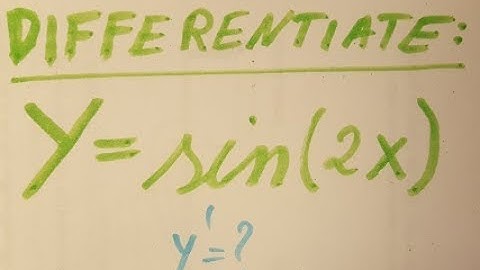 DIFFERENTIATE:
Y=sin(2x)
y'=?